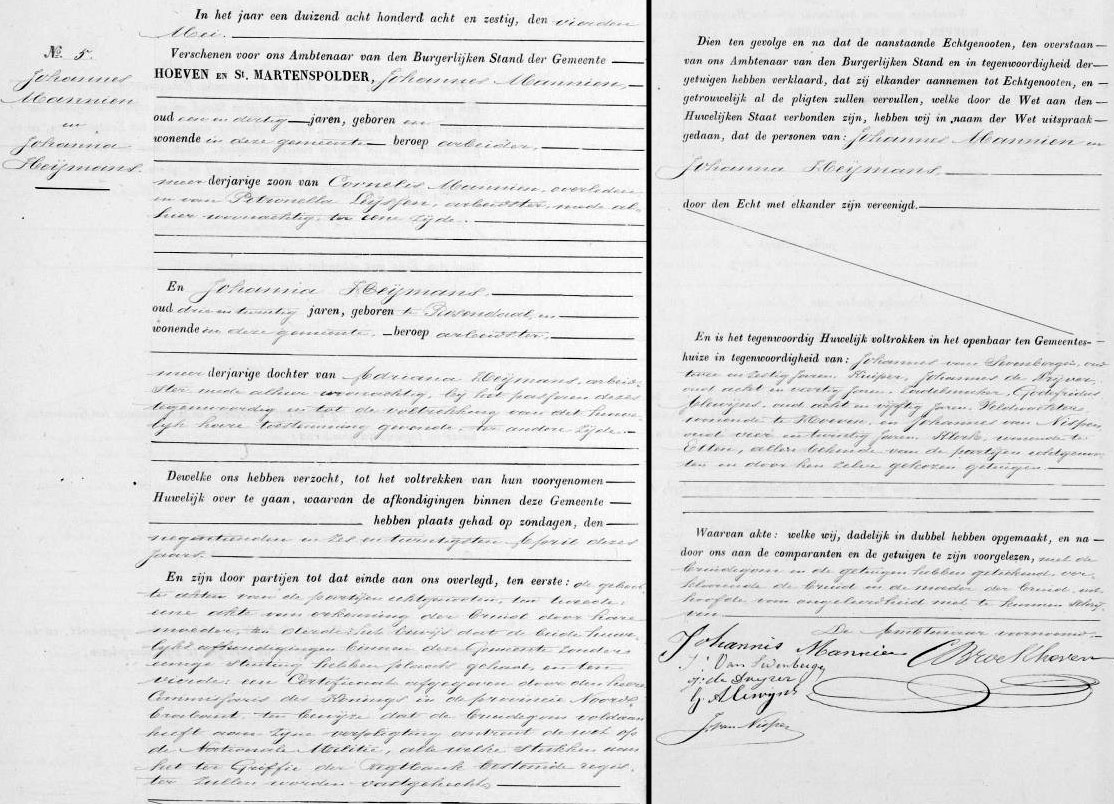 In het jaar een duizend acht honderd acht en zestig, den vierden
Mei.
№ 5.
Johannes
Mannien
en
Johanna
Heijmans.
Verschenen voor ons Ambtenaar van den Burgerlijken Stand der Gemeente
HOEVEN EN St. MARTENSPOLDER, Johannes Mannien,
oud een en dertig jaren, geboren en
wonende in deze gemeente beroep arbeider,
meerderjarige zoon van Cornelis Mannien, overleden
en van Petronella Luijsten, arbeidster, mede al-
hier woonachtig, ter eene zijde.
En Johanna Heijmans.
oud drie en twintig jaren, geboren te Rosendaal, en
wonende in deze gemeente, beroep arbeidster.
meerderjarige dochter van Adriana Heijmans, arbeid-
ster mede alhier woonachtig, bij het passeren dezes
tegenwoordig en tot de voltrekking van dit huwe-
lijk hare toestemming gevende, ter andere zijde.
Dewelke ons hebben verzocht, tot het voltrekken van hun voorgenomen
Huwelijk over te gaan, waarvan de afkondigingen binnen deze Gemeente
hebben plaats gehad op zondagen, den
negentienden en zes en twintigsten April dezes
jaars.
En zijn door partijen tot dat einde aan ons overlegd, ten eerste: de geboor-
te akten van de partijen echtgenooten, ten tweede:
eene akte van erkenning der bruid door hare
moeder, ten derde: het bewijs dat de beide huwe-
lijks afkondigingen binnen deze Gemeente zonder
eenige stuiting hebben plaats gehad, en ten
vierde: een Certificaat afgegeven door den heere
Commissaris des Konings in de provincie Noord-
braband, ten bewijze dat de bruidegom voldaan
heeft aan zijne verpligting omtrent de wet op
de Nationale Militie, alle welke stukken aan
het ter Griffie der regtbank bestemde regis-
ter zullen worden vastgehecht.
Dien ten gevolge en na dat de aanstaande Echtgenooten, ten overstaan
van ons Ambtenaar van den Burgerlijken Stand en in tegenwoordigheid der
getuigen hebben verklaard, dat zij elkander aannemen tot Echtgenooten, en
getrouwelijk al de pligten zullen vervullen, welke door de Wet aan den
Huwelijken Staat verbonden zijn, hebben wij in naam der Wet uitspraak
gedaan, dat de personen van: Johannes Mannien en
Johanna Heijmans.
door den Echt met elkander zijn vereenigd.
En is het tegenwoordig Huwelijk voltrokken in het openbaar ten Gemeentes-
huize in tegenwoordigheid van: Johannes van Sevenbergen, oud
twee en zestig jaren, Kuiper, Johannes de Snijder,
oud acht en veertig jaren, Godefridus
Alewijns, oud acht en vijftig jaren, Veldwachter,
wonende te Hoeven, en Johannes van Nispen,
oud vier en twintig jaren, Klerk, wonende te
Etten, allen bekende van de partijen echtgenoo-
ten en door hen zelve gekozen getuigen
Waarvan akte: welke wij, dadelijk in dubbel hebben opgemaakt, en na
door ons aan de comparanten en de getuigen te zijn voorgelezen, met de
bruidegom en de getuigen hebben geteekend, ver-
klarende de bruid en de moeder der bruid, uit
hoofde van ongeleerdheid niet te kunnen schrij-
ven
De Ambtenaar voornoemd.
Johannis Mannien
C Broekhoven
J. Van Sevenberge
J. de Snyder
G Alewyns
J van Nispen